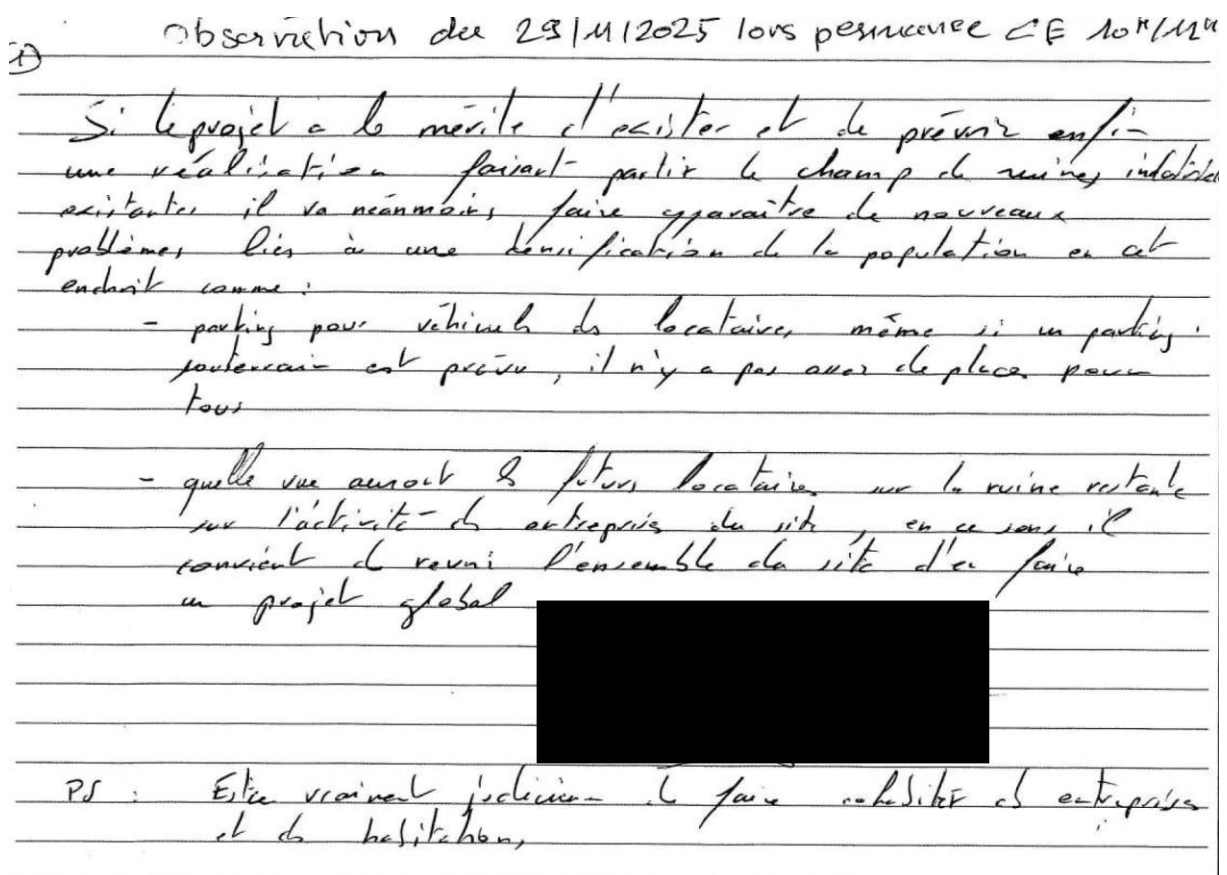 Observation du 29/11/2025 lors permanence CE 10H/12H
①
Si le projet a le mérite d'exister et de prévoir enfin
une réalisation faisant partir le champ de ruines
existantes il va néanmoins faire apparaître de nouveaux
problèmes liés à une densification de la population en cet
endroit comme :
- parking pour véhicules des locataires même si un parking
souterrain est prévu, il n'y a pas assez de places pour
tous
- quelle vue auront les futurs locataires sur la ruine restante
sur l'activité des entreprises du site, en ce sens il
convient de réunir l'ensemble du site d'en faire
un projet global
PS : Est ce vraiment judicieux de faire cohabiter des entreprises
et des habitations,